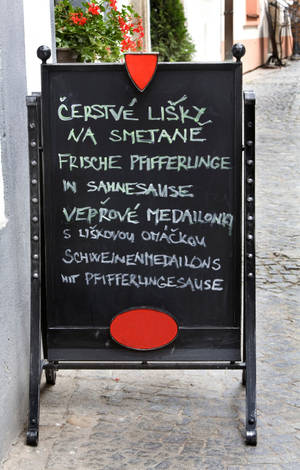 ČERSTVÉ LIŠKY
NA SMETANĚ
FRISCHE PFIFFERLINGE
IN SAHNESAUSE
VEPŘOVÉ MEDAILONKY
S LIŠKOVOU OMÁČKOU
SCHWEINENMEDAILONS
MIT PFIFFERLINGESAUSE